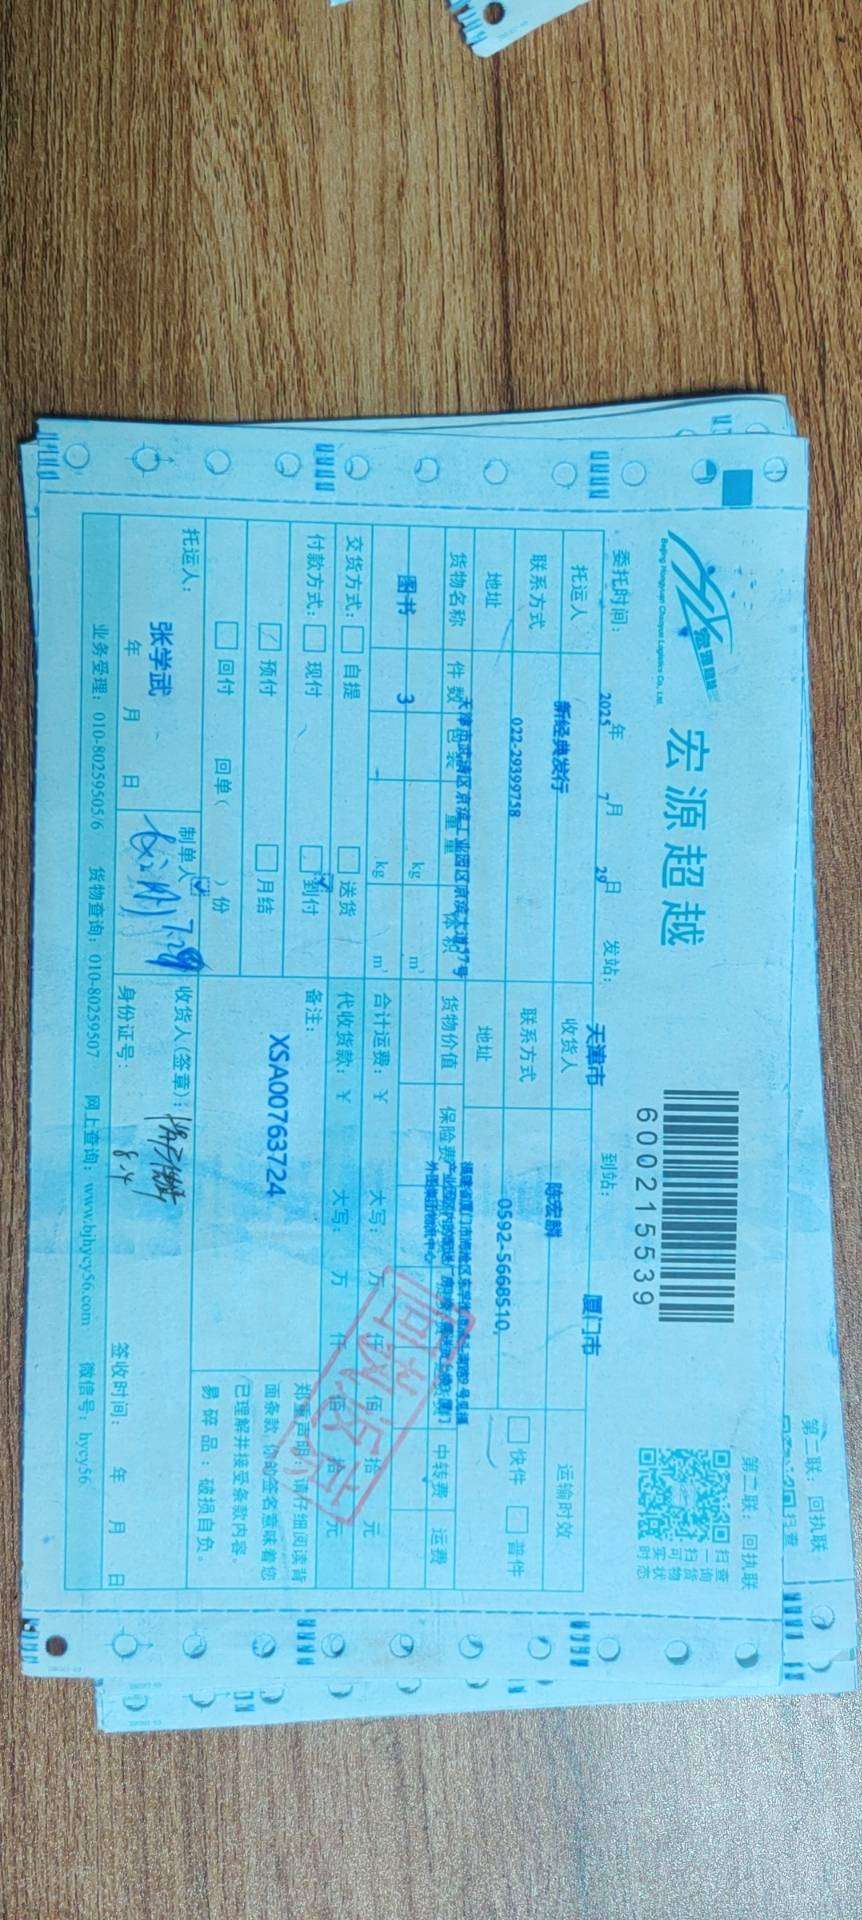 宏源超越
Beijing Hongyuan Chaoyue Logistics Co., Ltd.
600215539
第二联：回执联
扫一扫可实时
查询货物状态
委托时间： 2025 年 7 月 29 日 发站： 天津市 到站： 厦门市
托运人 新经典发行 收货人 陈宏麟 运输时效
联系方式 022-29399758 联系方式 0592-5668510, 快件 普件
地址 天津市武清区京滨工业园区京滨大道77号 地址
货物名称 件数 包装 重量 体积 货物价值 保险费 中转费 运费
图书 3 kg m³
kg m³ 合计运费：￥ 大写： 万 仟 佰 拾 元
交货方式： 自提 送货 代收货款：￥ 大写： 万 仟 佰 拾 元
付款方式： 现付 到付 备注：
预付 月结 XSA00763724
回付 回单（ ）份
郑重声明：请仔细阅读背
面条款，你的签名意味着您
已理解并接受条款内容。
易碎品：破损自负。
托运人： 张学武 制单人 7.29 收货人(签章)：
8.4
年 月 日 身份证号： 签收时间： 年 月 日
业务受理：010-80259505/6 货物查询：010-80259507 网上查询：www.bjhycy56.com 微信号：hycy56
第二联：回执联
扫查